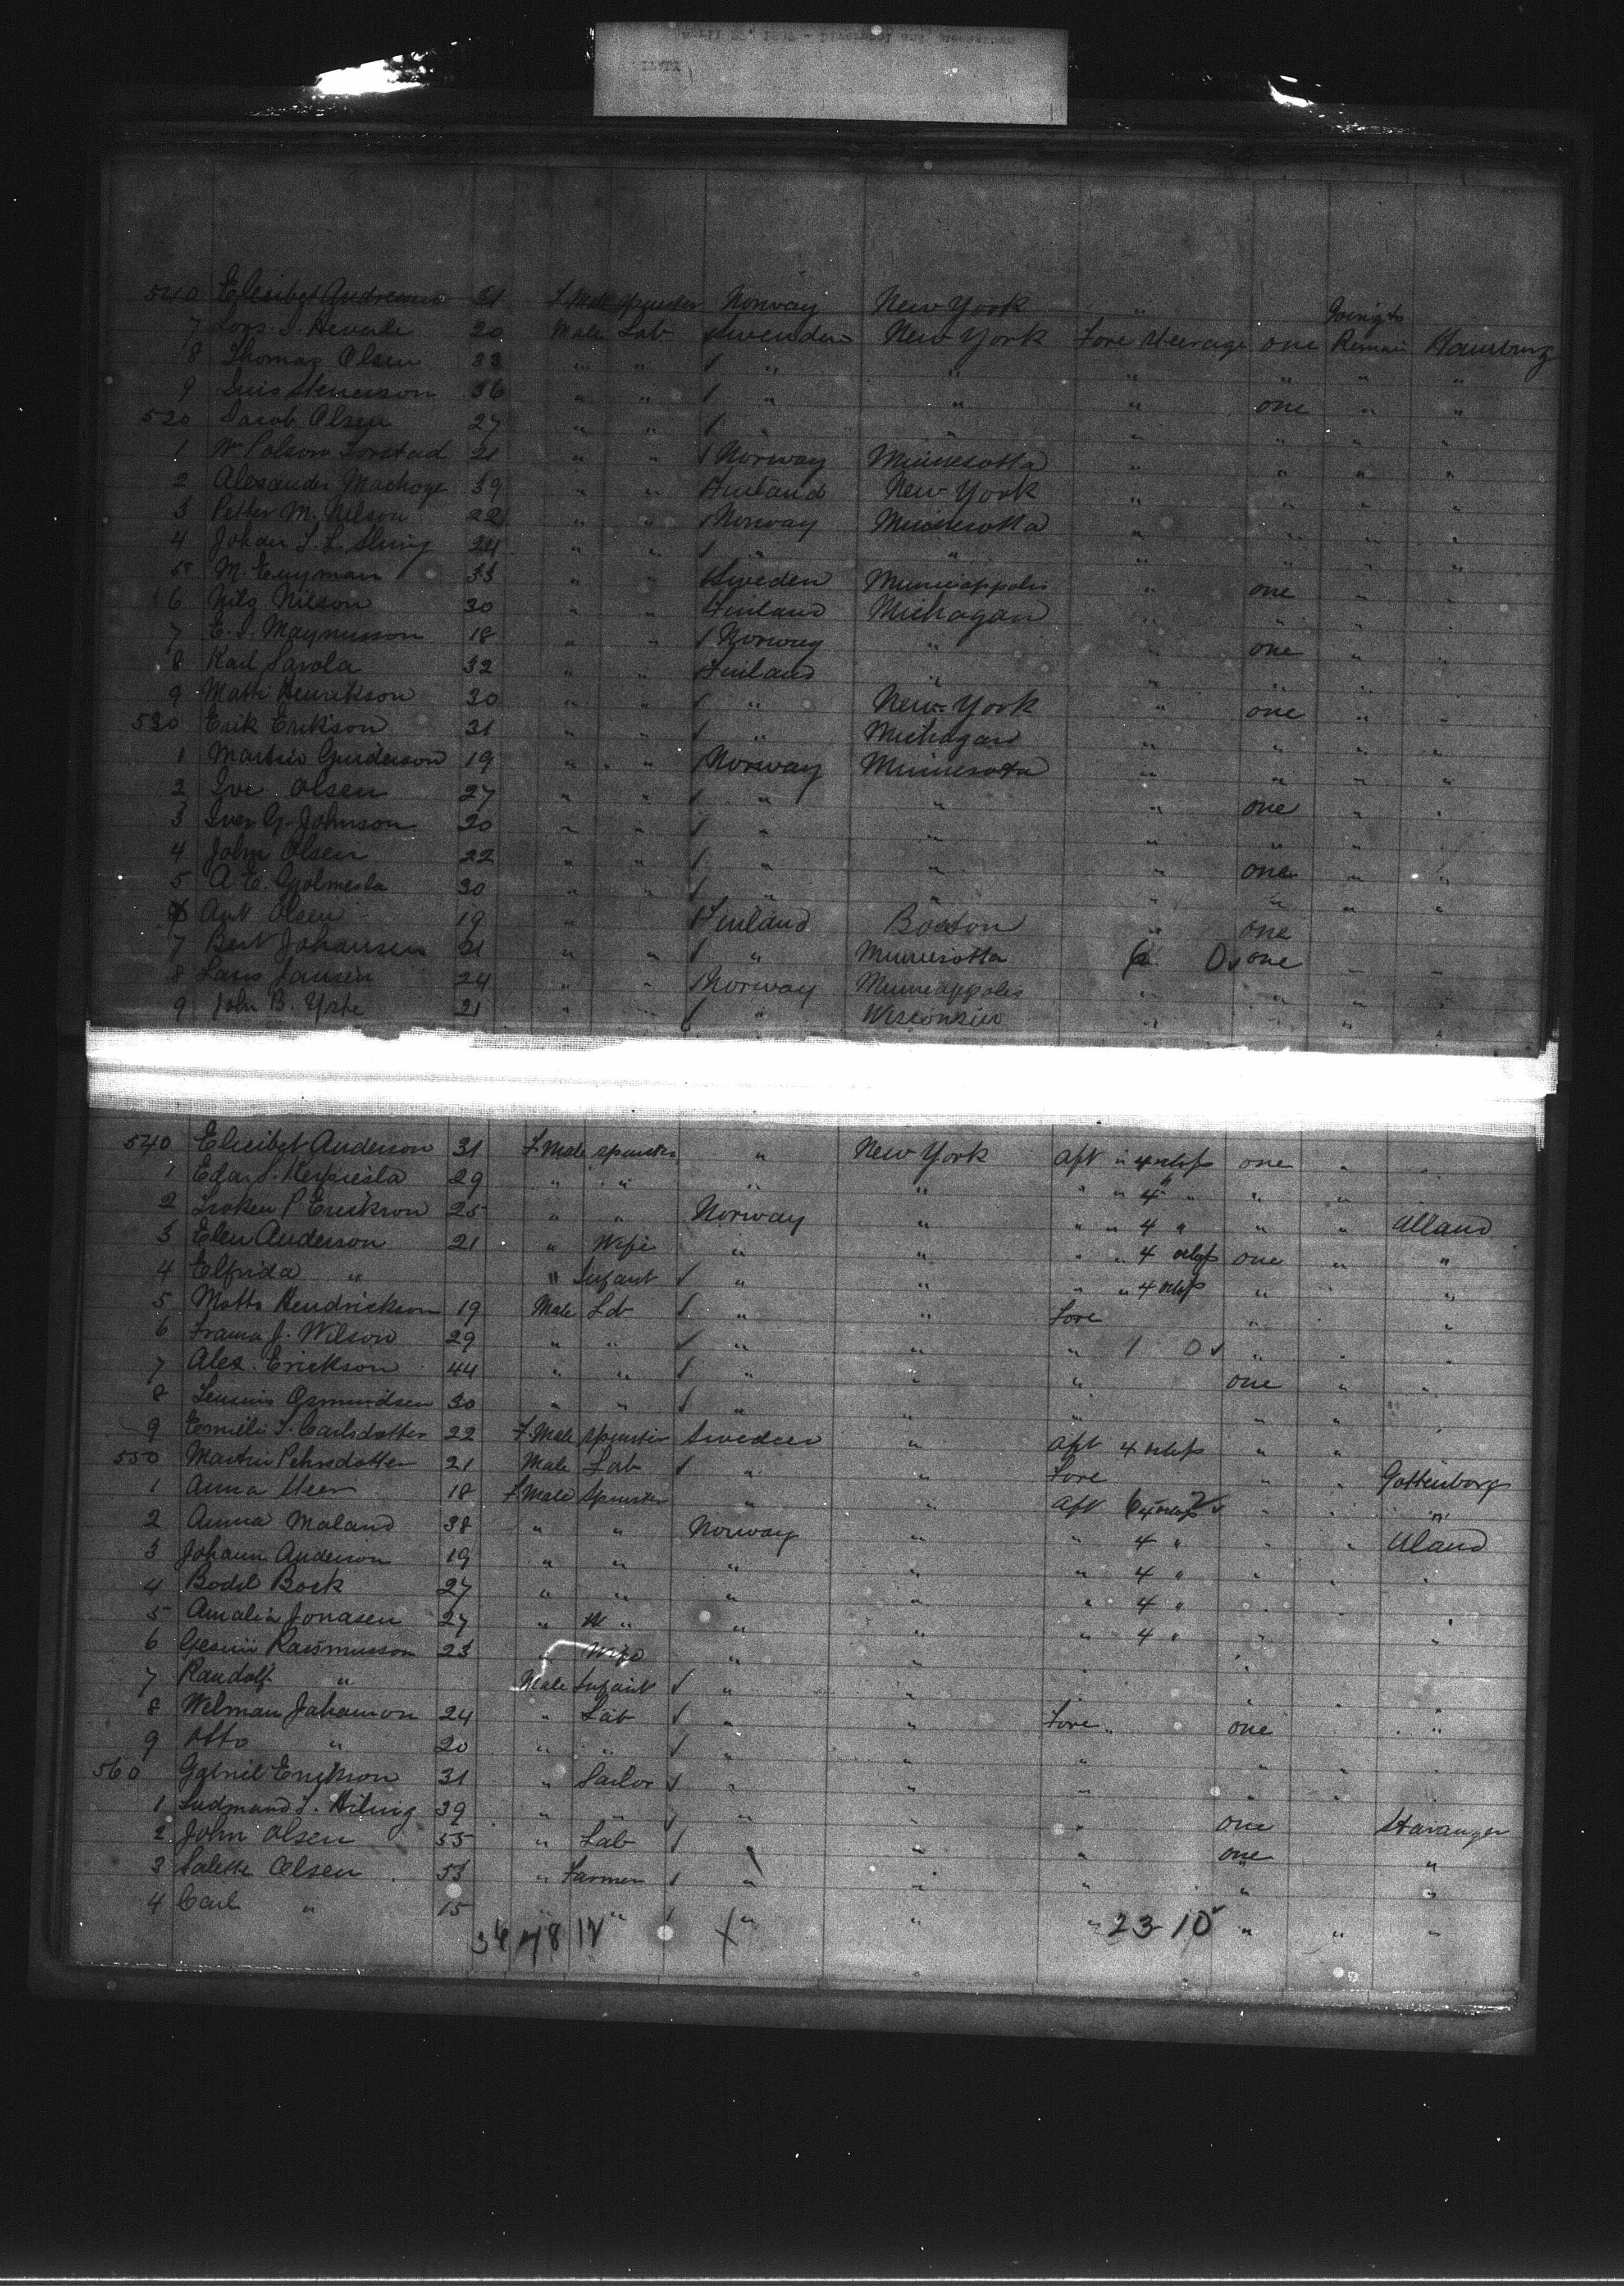 540 Elesibet Anderson 31 F.Male spinster Norway New York "
7 Lars. S. Heverle 20 Male Lab Swenden New York Fore Steerage one Going to Remain Hamburg
8 Thomas Olsen 33 " " " " " " " "
9 Stenerson 36 " " " " " one " "
520 Jacob Olsen 27 " " " " " " " "
1 Wm Polson Torstad 21 " " Norway Minnesotta " " " "
2 Alexander 39 " " Finland New York " " " "
3 Petter M. Nelson 22 " " Norway Minnesotta " " " "
4 Johan 24 " " " " " " " "
5 M. Enyman 33 " " Sweden Munneappolis " one " "
6 Nils Nilson 30 " " Finland Michagan " " " "
7 E. S. Maynusson 18 " " Norway " " one " "
8 Karl Sarola 32 " " Finland " " " " "
9 Matti Henrikson 30 " " " New York " one " "
530 Erik Erikson 31 " " " Michagan " " " "
1 Martin Gunderson 19 " " Norway Minnesota " " " "
2 Ive Olsen 27 " " " " " one " "
3 Iver G. Johnson 20 " " " " " " " "
4 John Olsen 22 " " " " " one " "
5 A. E. Gjolmesla 30 " " " " " " " "
6 Ant Olsen 19 " Finland Boston " one
7 Bert Johansen 21 " " " Minnesotta 6 0 v one " "
8 Lars Jansen 24 " " Norway Munneappolis " " " "
9 John B. 21 " " " Wisconsin " " " "
540 Elesibet Anderson 31 F.Male spinster " New York Aft " 4 orlop one " "
1 Eda. S. 29 " " " " " " 4 " " "
2 P Erickson 25 " " Norway " " " 4 " " " Alland
3 Elen Anderson 21 " Wife " " " " 4 orlop one " "
4 Elfrida " " Infant " " " " 4 orlop " " "
5 Motts Hendrickson 19 Male Lab " " Fore " "
6 J. Wilson 29 " " " " " 1 0 v " "
7 Alex. Erickson 44 " " " " " one " "
8 Osmundsen 30 " " " " " " " "
9 Emili S. Carlsdotter 22 F.Male spinster Sweden " Aft 4 orlop " "
550 Martin Pehrsdotter 21 Male Lab " " Fore " " Gottenborg
1 Anna Steen 18 F.Male Spinster " " Aft 6 4 orlop " " "
2 Anna Maland 38 " " Norway " " 4 " " " Aland
3 Johann Anderson 19 " " " " " 4 " " " "
4 Bodil Bock 27 " " " " " 4 " "
5 Amalia Jonasen 27 " " " " " 4 " " "
6 Rasmusson 23 " Wife " " " "
7 Randolf " Male Infant " " " "
8 Welman Johanson 24 " Lab " " Fore " one "
9 Otto " 20 " " " " " " "
560 Gabriel Erickson 31 " Sailor " " " "
1 39 " " " " " one Stavanger
2 John Olsen 55 " Lab " " " one "
3 Salette Olsen 53 " Farmer " " " " "
4 Carl " 15 " " " " " 23 10 " " "
36 48 12